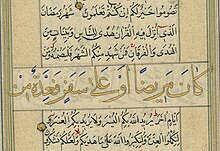 تصوموا خير لكم إن كنتم تعلمون شهر رمضان
الذي أنزل فيه القرآن هدى للناس وبينات من
الهدى والفرقان فمن شهد منكم الشهر فليصمه ومن
كان مريضا أو على سفر فعدة من
أيام أخر يريد الله بكم اليسر ولا يريد بكم العسر
ولتكملوا العدة ولتكبروا الله على ما هديكم ولعلكم تشكرون